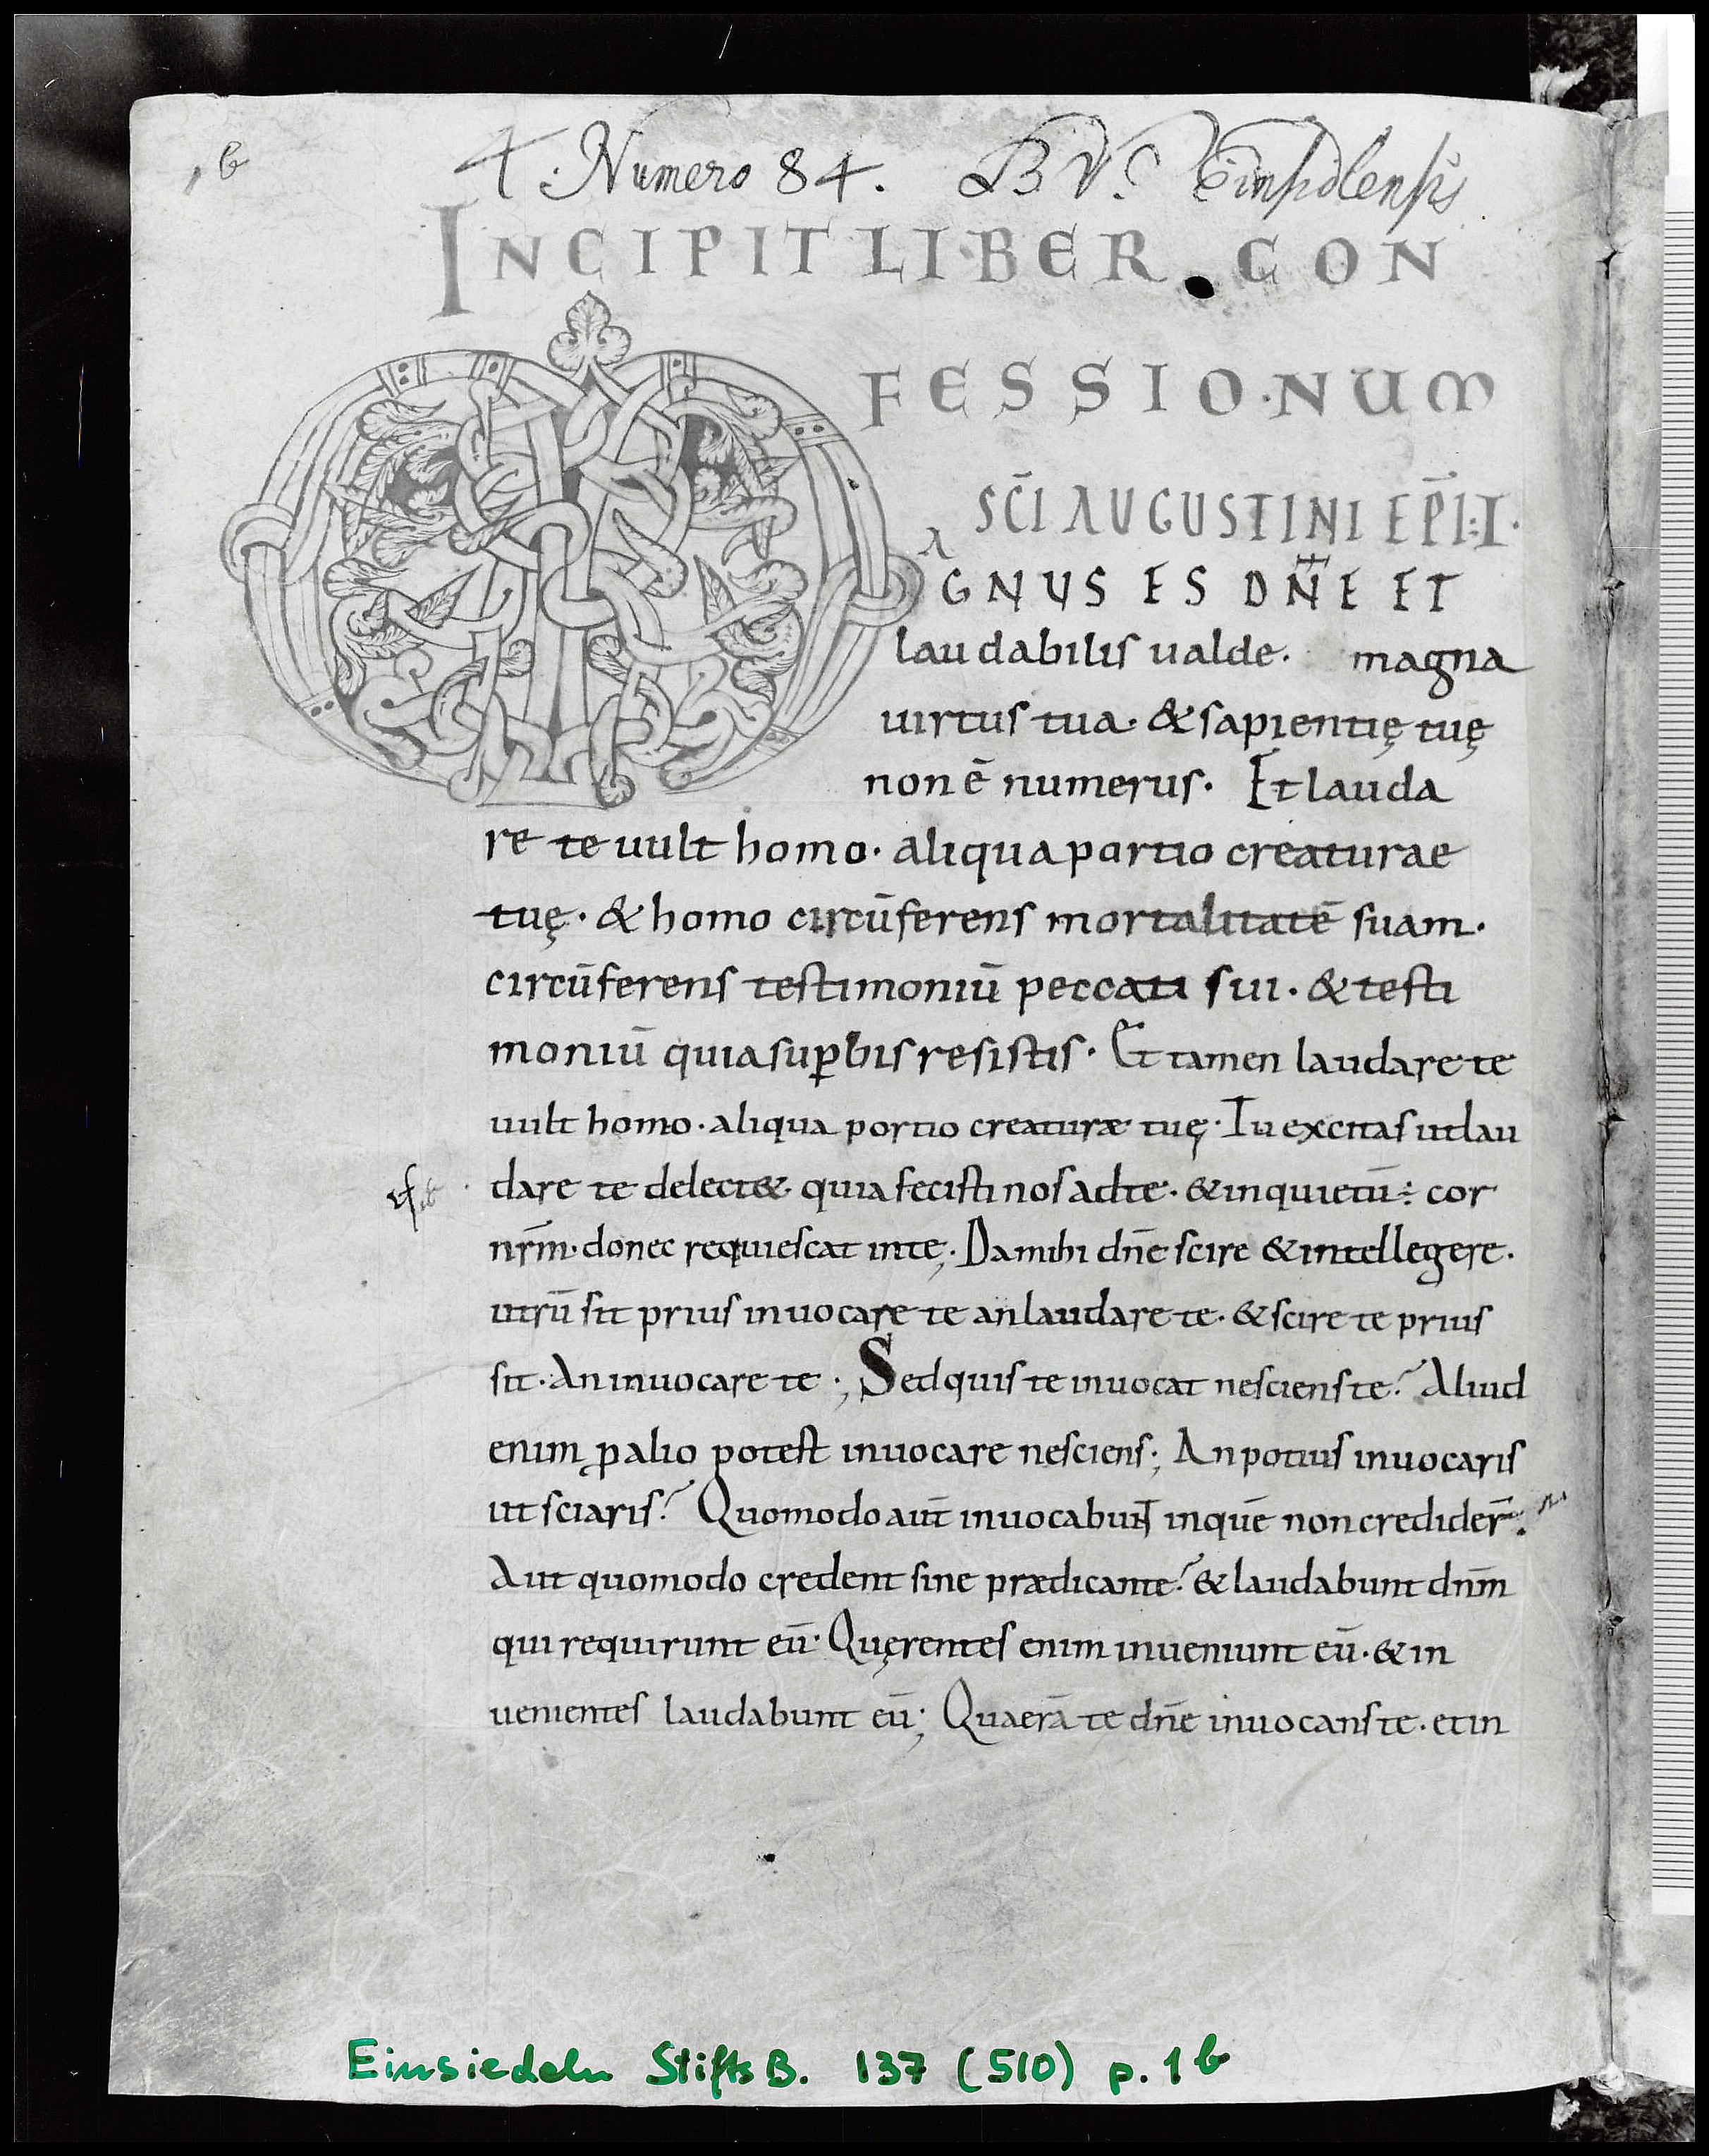 1b
Numero 84. B V. Einsidlensis
INCIPIT LIBER CON
FESSIONUM
SC̄I AUGUSTINI EP̄I: I.
MAGNUS ES DN̄E ET
laudabilis ualde. magna
uirtus tua. & sapientię tuę
non ē numerus. Et lauda
re te uult homo. aliqua portio creaturae
tuę. & homo circūferens mortalitatē suam.
circūferens testimoniū peccati sui. & testi
moniū quia sup̱bis resistis. Et tamen laudare te
uult homo. aliqua portio creaturæ tuę. Tu excitas ut lau
dare te delect&. quia fecisti nos ad te. & inquietū ÷ cor
nr̄m. donec requiescat in te; Da mihi dn̄e scire & intellegere.
utrū sit prius inuocare te an laudare te. & scire te prius
sit. An inuocare te; Sed quis te inuocat nesciens te? Aliud
enim ꝓ alio potest inuocare nesciens; An potius inuocaris
ut sciaris? Quomodo aut̄ inuocabunt inquē non credider̄.
Aut quomodo credent sine prædicante? & laudabunt dn̄m
qui requirunt eū. Quęrentes enim inueniunt eū. & in
uenientes laudabunt eū; Quaerā te dn̄e inuocans te. et in
Einsiedeln StiftsB. 137 (510) p. 1b